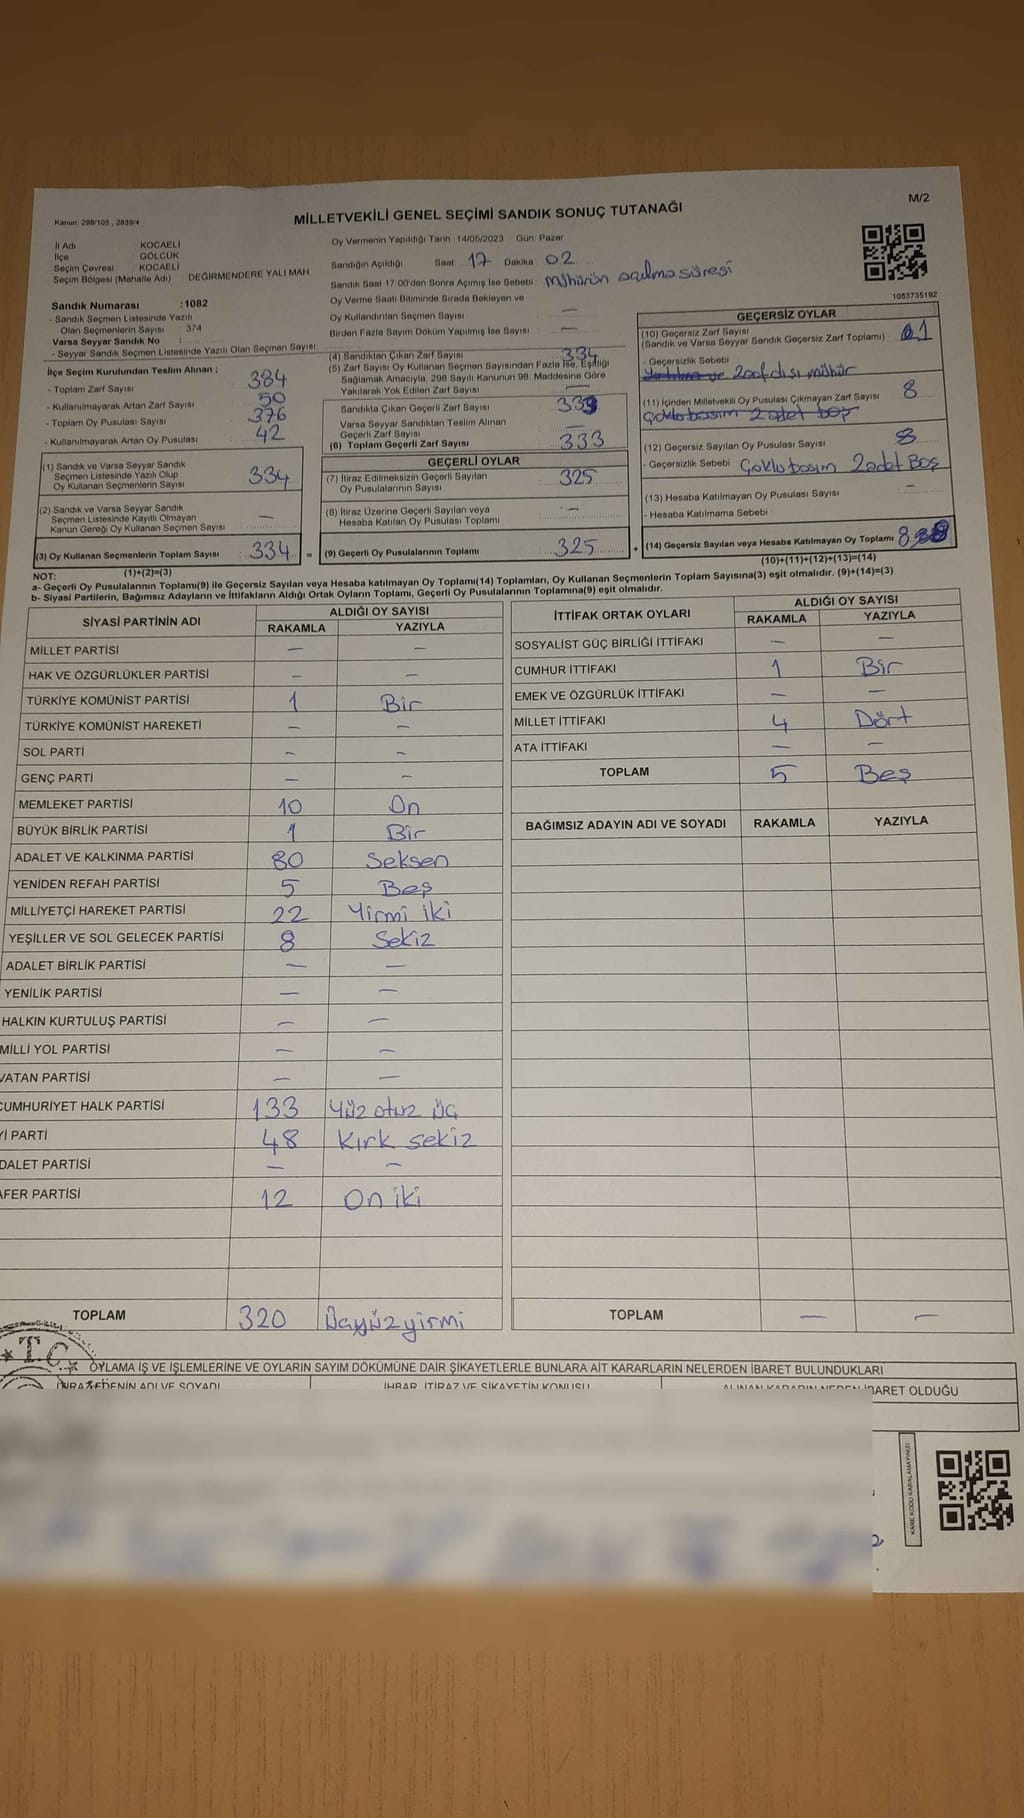 M/2
Kanun: 298/105 , 2839/4
MİLLETVEKİLİ GENEL SEÇİMİ SANDIK SONUÇ TUTANAĞI
İl Adı : KOCAELİ
İlçe : GÖLCÜK
Seçim Çevresi : KOCAELİ
Seçim Bölgesi (Mahalle Adı) : DEĞİRMENDERE YALI MAH
Oy Vermenin Yapıldığı Tarih :14/05/2023 Gün: Pazar
Sandığın Açıldığı Saat: 17 Dakika 02
Sandık Saat 17.00'den Sonra Açılmış İse Sebebi : Mührün açılma süresi
Oy Verme Saati Bitiminde Sırada Bekleyen ve
Oy Kullandırılan Seçmen Sayısı : —
Birden Fazla Sayım Döküm Yapılmış İse Sayısı : —
1083735192
Sandık Numarası :1082
- Sandık Seçmen Listesinde Yazılı
Olan Seçmenlerin Sayısı : 374
Varsa Seyyar Sandık No :
- Seyyar Sandık Seçmen Listesinde Yazılı Olan Seçmen Sayısı:
İlçe Seçim Kurulundan Teslim Alınan ;
- Toplam Zarf Sayısı 384
- Kullanılmayarak Artan Zarf Sayısı 50
- Toplam Oy Pusulası Sayısı 376
- Kullanılmayarak Artan Oy Pusulası 42
(1) Sandık ve Varsa Seyyar Sandık
Seçmen Listesinde Yazılı Olup
Oy Kullanan Seçmenlerin Sayısı 334
(2) Sandık ve Varsa Seyyar Sandık
Seçmen Listesinde Kayıtlı Olmayan
Kanun Gereği Oy Kullanan Seçmen Sayısı —
(3) Oy Kullanan Seçmenlerin Toplam Sayısı : 334 =
(1)+(2)=(3)
(4) Sandıktan Çıkan Zarf Sayısı 334
(5) Zarf Sayısı Oy Kullanan Seçmen Sayısından Fazla İse, Eşitliği
Sağlamak Amacıyla, 298 Sayılı Kanunun 98. Maddesine Göre
Yakılarak Yok Edilen Zarf Sayısı —
Sandıkta Çıkan Geçerli Zarf Sayısı : 333
Varsa Seyyar Sandıktan Teslim Alınan
Geçerli Zarf Sayısı —
(6) Toplam Geçerli Zarf Sayısı 333
GEÇERLİ OYLAR
(7) İtiraz Edilmeksizin Geçerli Sayılan
Oy Pusulalarının Sayısı 325
(8) İtiraz Üzerine Geçerli Sayılan veya
Hesaba Katılan Oy Pusulası Toplamı : —
(9) Geçerli Oy Pusulalarının Toplamı 325 +
GEÇERSİZ OYLAR
(10) Geçersiz Zarf Sayısı
(Sandık ve Varsa Seyyar Sandık Geçersiz Zarf Toplamı) : 1
- Geçersizlik Sebebi
Zarf dışı mühür
(11) İçinden Milletvekili Oy Pusulası Çıkmayan Zarf Sayısı 8
Çoklu basım 2 adet boş
(12) Geçersiz Sayılan Oy Pusulası Sayısı 8
- Geçersizlik Sebebi Çoklu basım 2 adet Boş
(13) Hesaba Katılmayan Oy Pusulası Sayısı —
- Hesaba Katılmama Sebebi :
(14) Geçersiz Sayılan veya Hesaba Katılmayan Oy Toplamı
(10)+(11)+(12)+(13)=(14)
NOT:
a- Geçerli Oy Pusulalarının Toplamı(9) ile Geçersiz Sayılan veya Hesaba katılmayan Oy Toplamı(14) Toplamları, Oy Kullanan Seçmenlerin Toplam Sayısına(3) eşit olmalıdır. (9)+(14)=(3)
b- Siyasi Partilerin, Bağımsız Adayların ve İttifakların Aldığı Ortak Oyların Toplamı, Geçerli Oy Pusulalarının Toplamına(9) eşit olmalıdır.
SİYASİ PARTİNİN ADI ALDIĞI OY SAYISI
RAKAMLA YAZIYLA
MİLLET PARTİSİ — —
HAK VE ÖZGÜRLÜKLER PARTİSİ — —
TÜRKİYE KOMÜNİST PARTİSİ 1 Bir
TÜRKİYE KOMÜNİST HAREKETİ — —
SOL PARTİ — —
GENÇ PARTİ — —
MEMLEKET PARTİSİ 10 On
BÜYÜK BİRLİK PARTİSİ 1 Bir
ADALET VE KALKINMA PARTİSİ 80 Seksen
YENİDEN REFAH PARTİSİ 5 Beş
MİLLİYETÇİ HAREKET PARTİSİ 22 Yirmi iki
YEŞİLLER VE SOL GELECEK PARTİSİ 8 Sekiz
ADALET BİRLİK PARTİSİ — —
YENİLİK PARTİSİ — —
HALKIN KURTULUŞ PARTİSİ — —
MİLLİ YOL PARTİSİ — —
VATAN PARTİSİ — —
CUMHURİYET HALK PARTİSİ 133 Yüz otuz üç
Yİ PARTİ 48 Kırk sekiz
DALET PARTİSİ — —
AFER PARTİSİ 12 On iki
TOPLAM 320 Üçyüzyirmi
İTTİFAK ORTAK OYLARI ALDIĞI OY SAYISI
RAKAMLA YAZIYLA
SOSYALİST GÜÇ BİRLİĞİ İTTİFAKI — —
CUMHUR İTTİFAKI 1 Bir
EMEK VE ÖZGÜRLÜK İTTİFAKI — —
MİLLET İTTİFAKI 4 Dört
ATA İTTİFAKI — —
TOPLAM 5 Beş
BAĞIMSIZ ADAYIN ADI VE SOYADI RAKAMLA YAZIYLA
TOPLAM — —
T.C.
OYLAMA İŞ VE İŞLEMLERİNE VE OYLARIN SAYIM DÖKÜMÜNE DAİR ŞİKAYETLERLE BUNLARA AİT KARARLARIN NELERDEN İBARET BULUNDUKLARI
İHBAR, İTİRAZ VE ŞİKAYETİN KONUSU
BARET OLDUĞU
KARE KODU KARALAMAYINIZ!